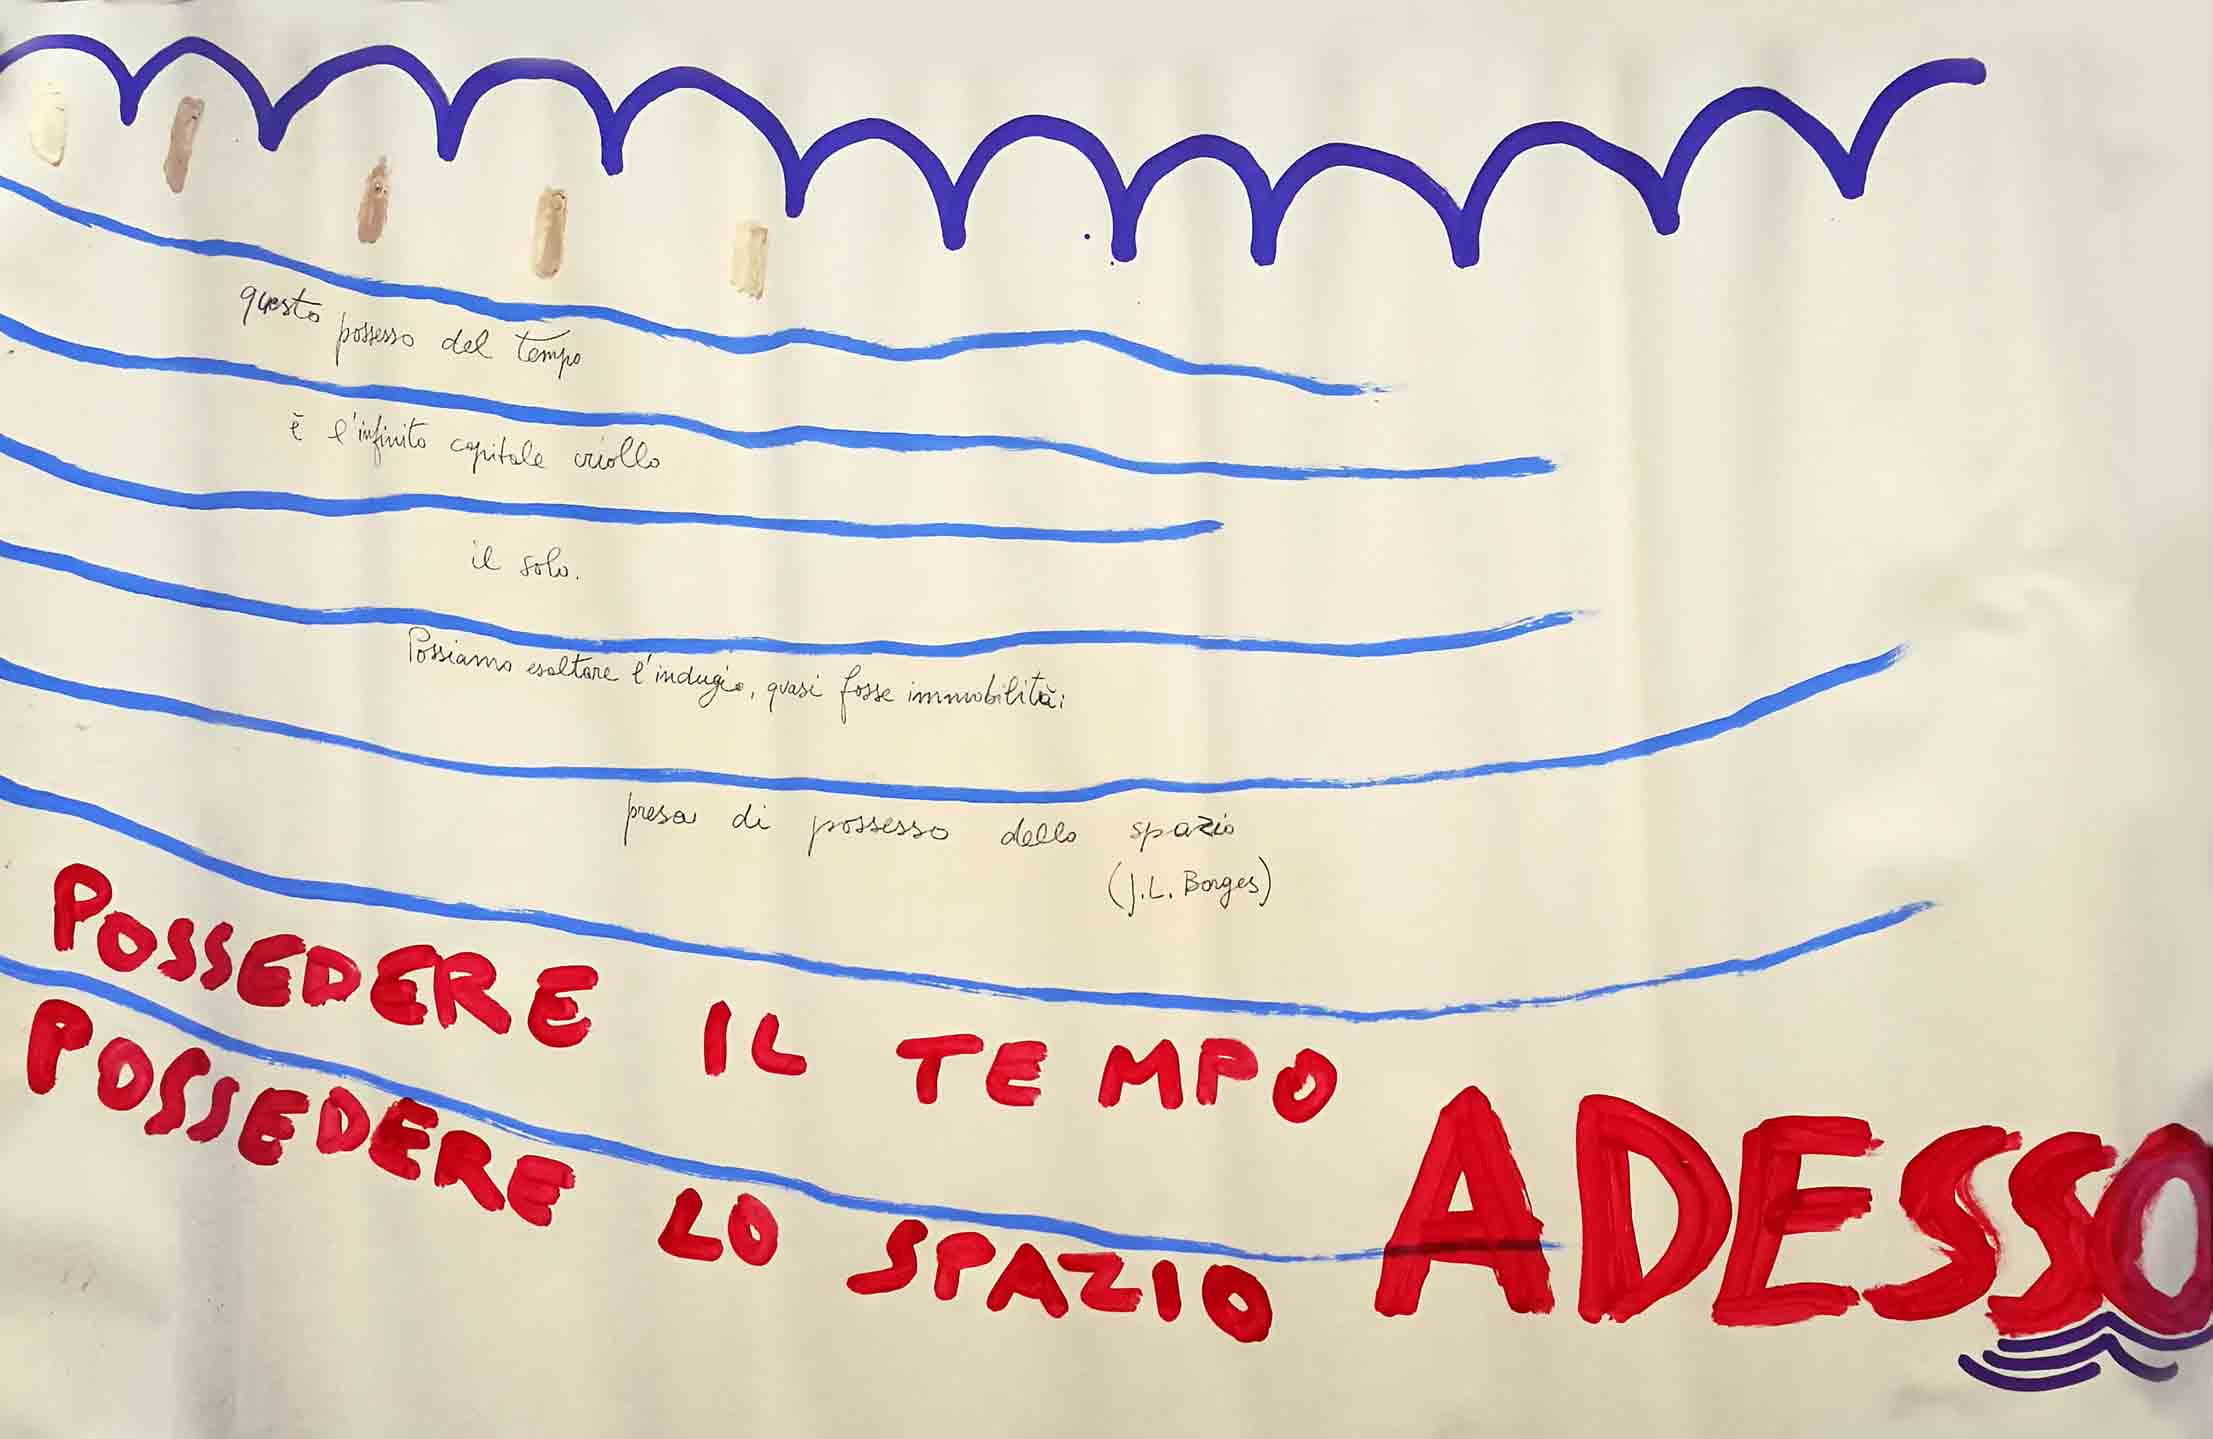 questo possesso del tempo
è l'infinito capitale criollo
il solo.
Possiamo esaltare l'indugio, quasi fosse immobilità:
presa di possesso dello spazio
(J.L. Borges)
POSSEDERE IL TEMPO
POSSEDERE LO SPAZIO
ADESSO